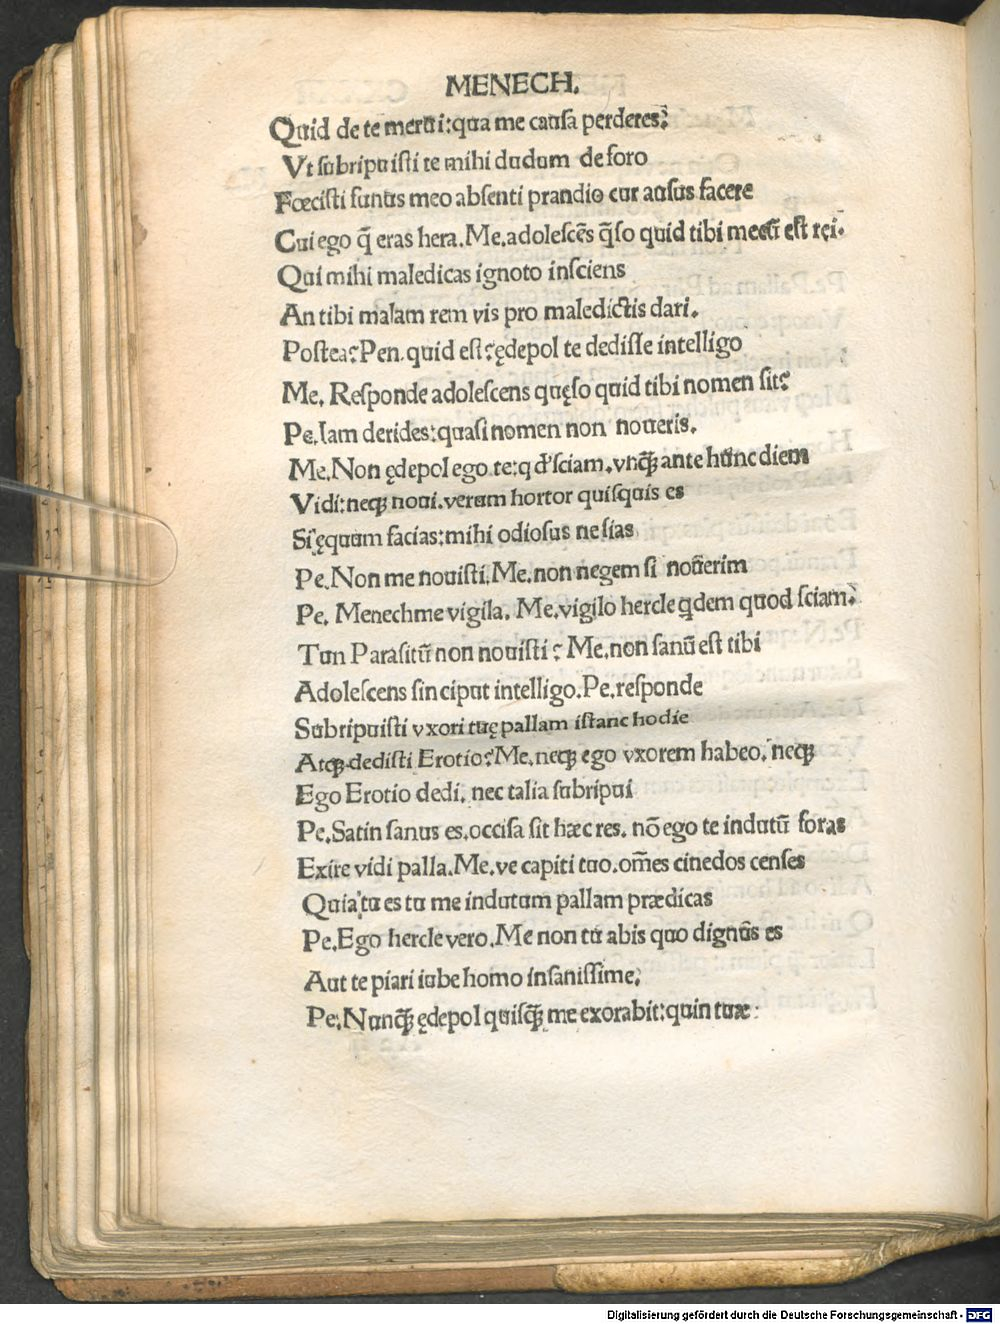 MENECH.
Quid de te merui:qua me causa perderes?
Vt subripuisti te mihi dudum de foro
Fœcisti funus meo absenti prandio cur ausus facere
Cui ego q̃ eras hera.Me.adolescẽs q̃so quid tibi mecũ est rei.
Qui mihi maledicas ignoto insciens
An tibi malam rem vis pro maledictis dari.
Postea?Pen.quid est?ędepol te dedisse intelligo
Me. Responde adolescens quęso quid tibi nomen sit?
Pe.Iam derides:quasi nomen non noueris.
Me.Non ędepol ego te:q d' sciam.vnq̃ ante hunc diem
Vidi:neq; noui.verum hortor quisquis es
Si ęquum facias:mihi odiosus ne sias
Pe.Non me nouisti.Me.non negem si nouerim
Pe. Menechme vigila. Me.vigilo hercle qdem quod sciam?
Tun Parasitũ non nouisti? Me.non sanũ est tibi
Adolescens sinciput intelligo.Pe.responde
Subripuisti vxori tuę pallam istanc hodie
Atq; dedisti Erotio?Me.neq; ego vxorem habeo. neq;
Ego Erotio dedi. nec talia subripui
Pe.Satin sanus es.occisa sit hæc res. nõ ego te indutũ foras
Exire vidi palla.Me.ve capiti tuo.om̃es cinedos censes
Quia tu es tu me indutum pallam prædicas
Pe.Ego hercle vero.Me non tu abis quo dignus es
Aut te piari iube homo insanissime?
Pe.Nunq̃ ędepol quisq̃ me exorabit:quin tuæ:
Digitalisierung gefördert durch die Deutsche Forschungsgemeinschaft - DFG